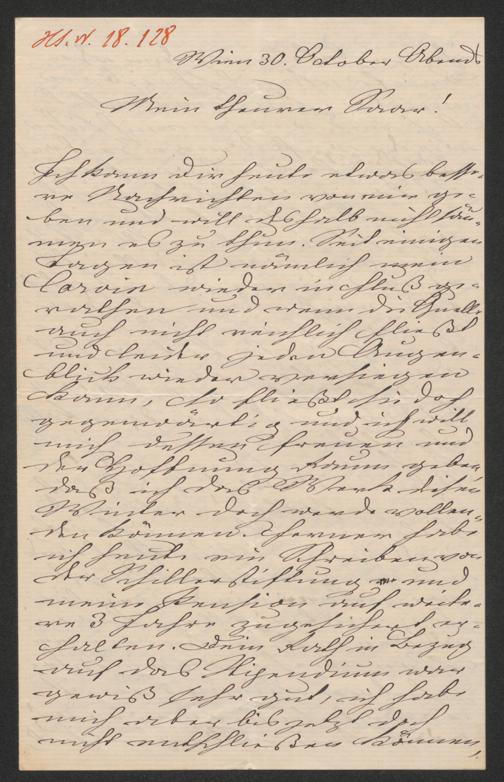 Hs. N. 18.128
Wien 30. October Abends
Mein theurer Saar!
Ich kann Dir heute etwas besse-
re Nachrichten von mir ge-
ben und will deshalb nicht säu-
men es zu thun. Seit einigen
Tagen ist nämlich mein
wieder in Fluß ge-
rathen und wenn die Quelle
auch nicht reichlich fließt
und leider jeden Augen-
blick wieder versiegen
kann, so fließt sie doch
gegenwärtig und ich will
mich dessen freuen und
der Hoffnung Raum geben
daß ich das Werk diesen
Winter doch werde vollen-
den können. Ferner habe
ich heute ein Schreiben von
der Schillerstiftung und
meine Pension auf weite-
re 3 Jahre zugesichert er-
halten. Dein Rath in Bezug
auf das Stipendium war
gewiß sehr gut, ich habe
mich aber bis jetzt doch
nicht entschließen können,